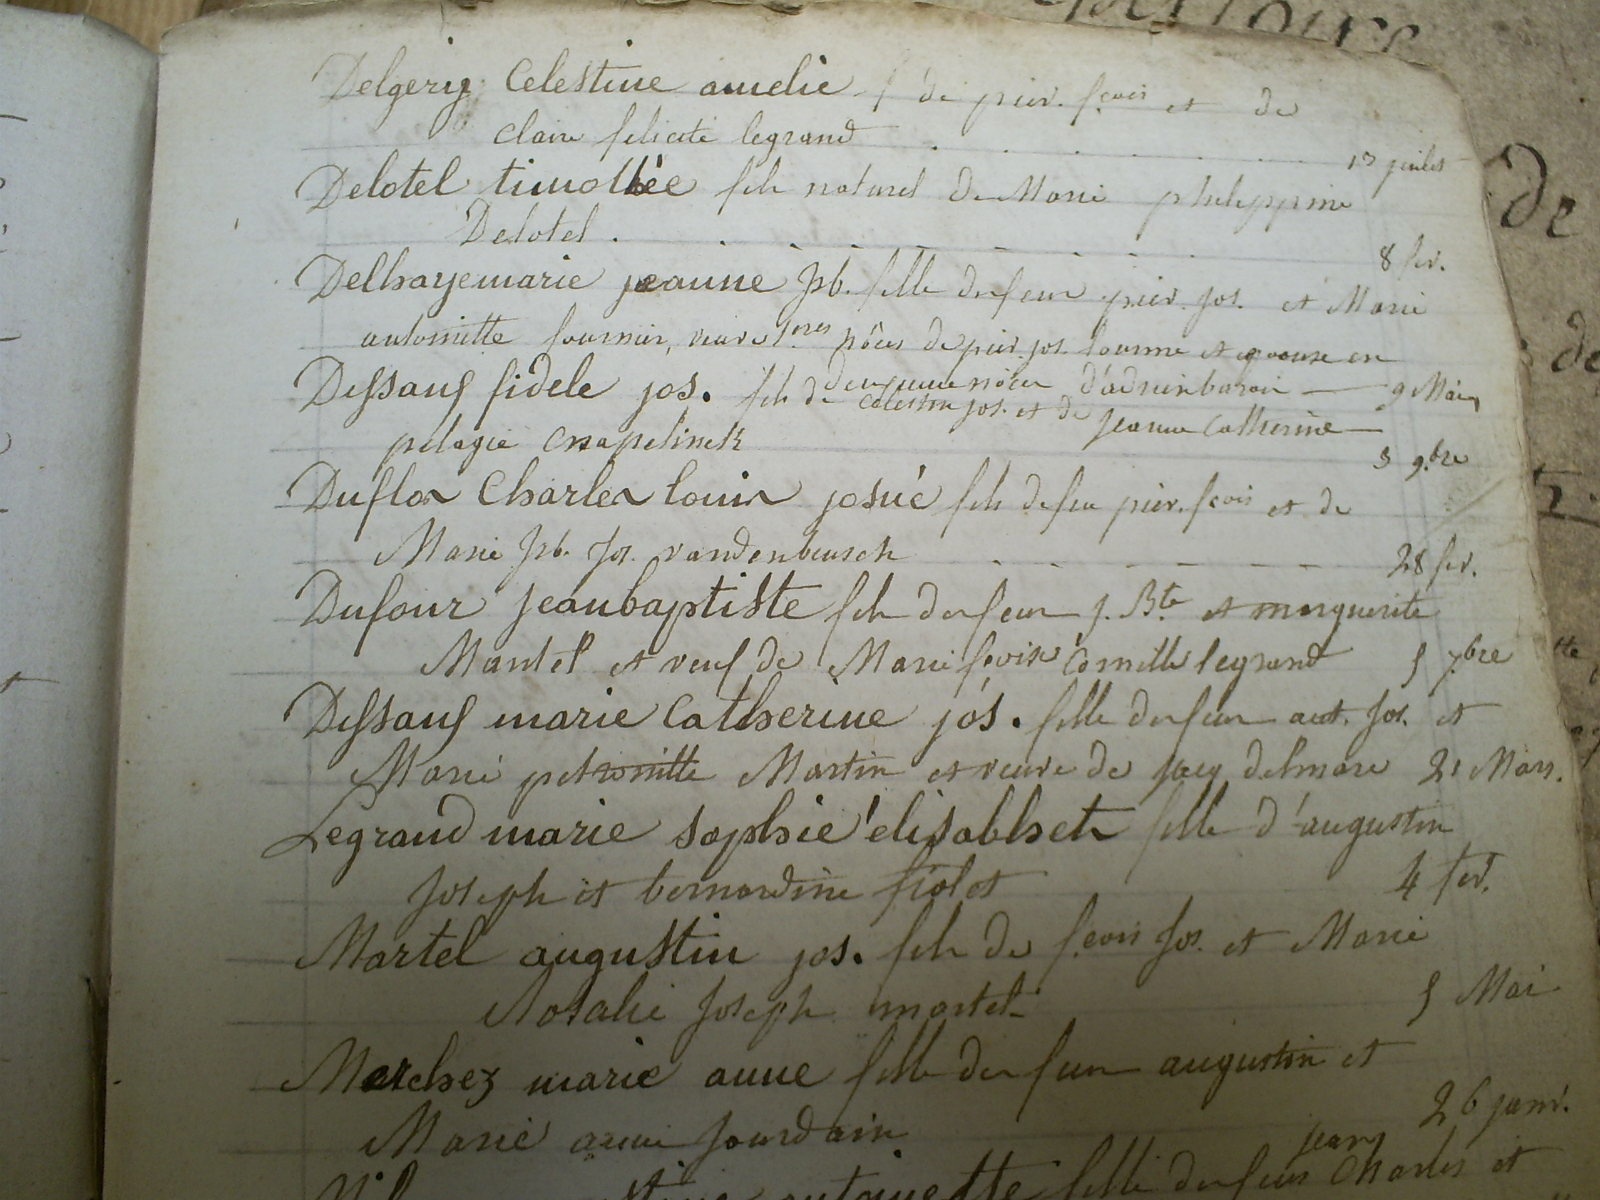 Delgery Celestine amelie f. de pier. f.çois et de
claire felicité legrand 13 juilet
Delotel timothée fils naturel de Marie philippine
Delotel. 8 fev.
Delhayemarie jeanne Jsb. fille de feu pier. jos. et Marie
antoinette fournier, veuve 1.eres nôces de pier. jos. et epouse en
deuxieme nôces d'adrien 9 Mai
Dessauf fidele jos. fils de celestin jos. et de jeanne Catherine
pelagie Cnapelinck 3 9.bre
Duflos Charles louis josué fils de feu pier. f.çois et de
Marie Jsb. Jos. vandenbeusch 28 fev.
Dufour jeanbaptiste fils de feu j. B.te et marguerite
Mantel et veuf de Marie f.çoise Camille legrand 5 7.bre
Dessauf marie Catherine jos. fille de feu ant. Jos. et
Marie petronille Martin et veuve de jacq delmare 21 Mars.
Legrand marie sophie élisabhet fille d'augustin
Joseph et bernardine fiolet 4 fev.
Martel augustin jos. fils de f.çois Jos. et Marie
Rosalie Joseph martel 5 Mai
Merchez marie anne fille de feu augustin et
Marie anne Jourdain 26 janv.
antoinette fille de feu jean Charles et